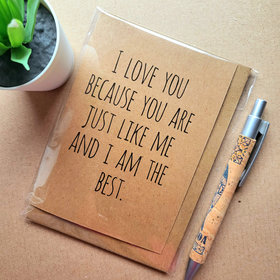 I LOVE YOU
BECAUSE YOU ARE
JUST LIKE ME
AND I AM THE
BEST.